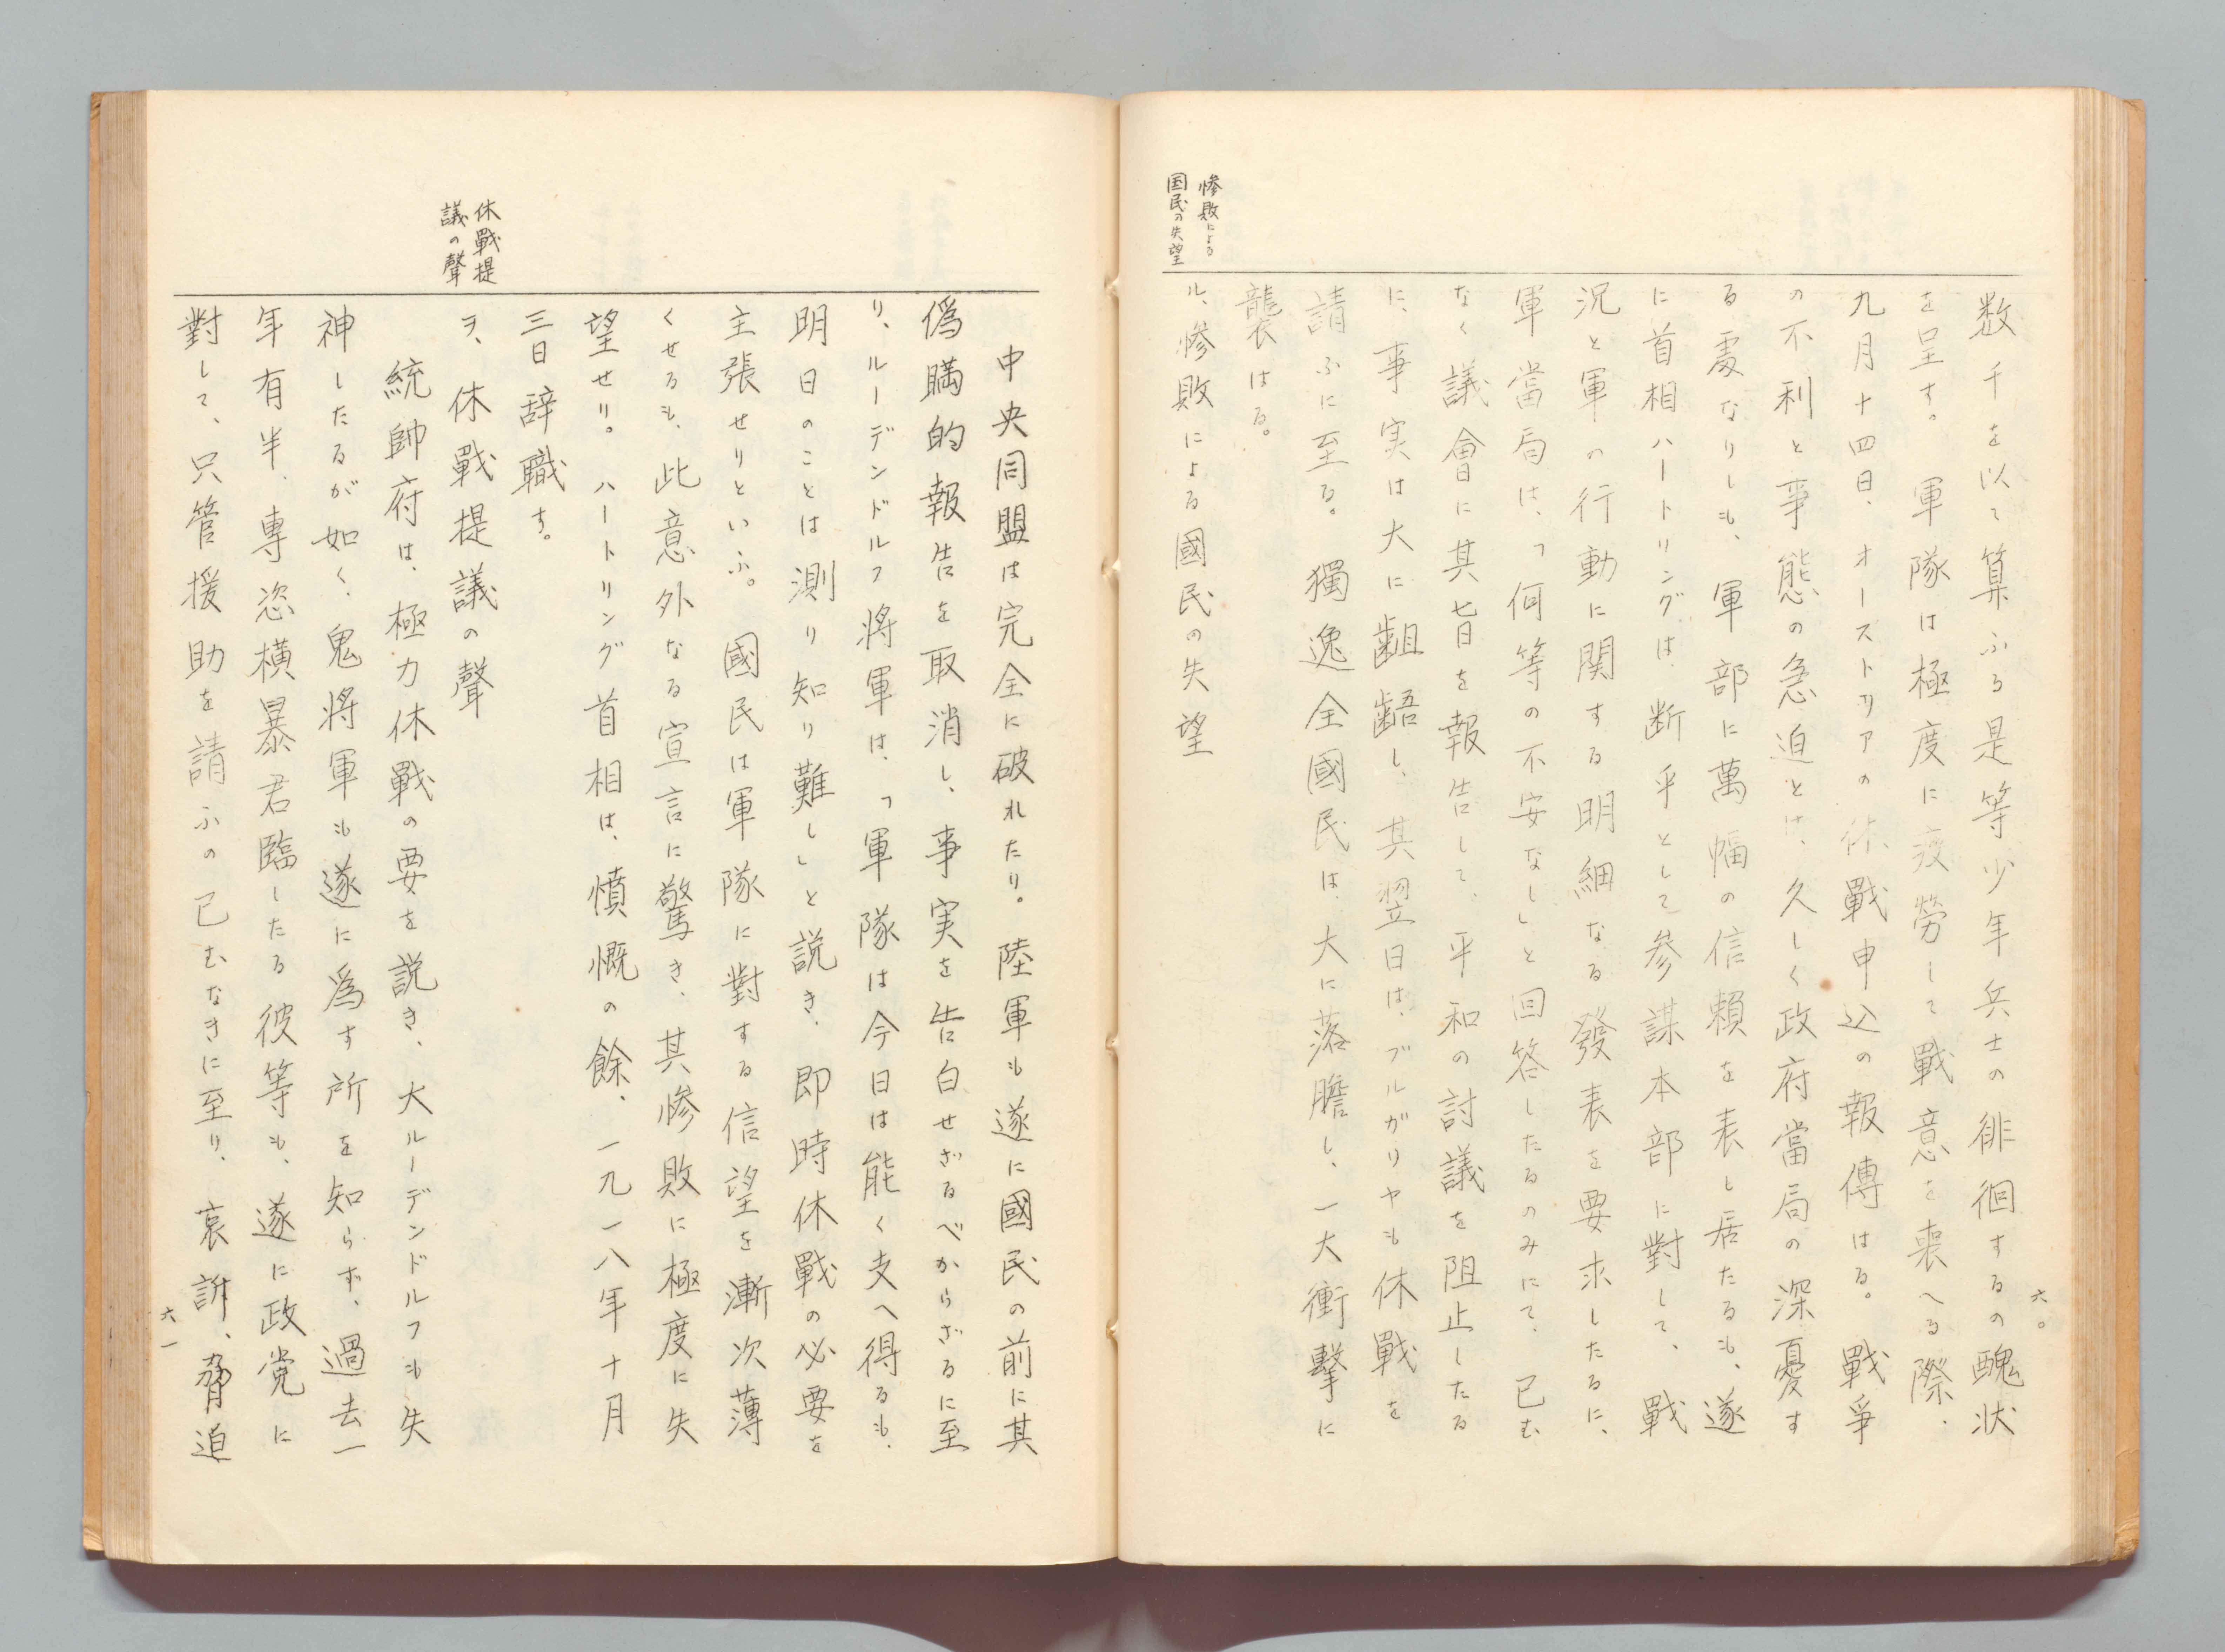 数千を以て算ふる是等少年兵士の徘徊するの醜状
を呈す。軍隊は極度に疲勞して戰意を喪へる際、
九月十四日、オーストリアの休戰申込の報傳はる。戰爭
の不利と事態の急迫とは、久しく政府當局の深憂す
る處なりしも、軍部に萬幅の信頼を表し居たるも、遂
に首相ハートリングは、断乎として参謀本部に對して、戰
況と軍の行動に関する明細なる發表を要求したるに、
軍當局は、「何等の不安なし」と回答したるのみにて、已む
なく議會に其七日を報告して、平和の討議を阻止したる
に、事実は大に齟齬し、其翌日は、ブルガリヤも休戰を
請ふに至る。獨逸全國民は、大に落膽し、一大衝擊に
襲はる。
惨敗による
国民の失望
ル、惨敗による國民の失望
六〇
中央同盟は完全に破れたり。陸軍も遂に國民の前に其
僞瞞的報告を取消し、事実を告白せざるべからざるに至
り、ルーデンドルフ將軍は、「軍隊は今日は能く支へ得るも、
明日のことは測り知り難し」と説き、即時休戰の必要を
主張せりといふ。國民は軍隊に對する信望を漸次薄
くせるも、此意外なる宣言に驚き、其惨敗に極度に失
望せり。ハートリング首相は、憤慨の餘、一九一八年十月
三日辞職す。
休戰提
議の聲
ヲ、休戰提議の聲
統帥府は、極力休戰の要を説き、大ルーデンドルフも失
神したるが如く、鬼將軍も遂に爲す所を知らず、過去一
年有半、專恣横暴君臨したる彼等も、遂に政党に
對して、只管援助を請ふの已むなきに至り、哀訴、脅迫
六一